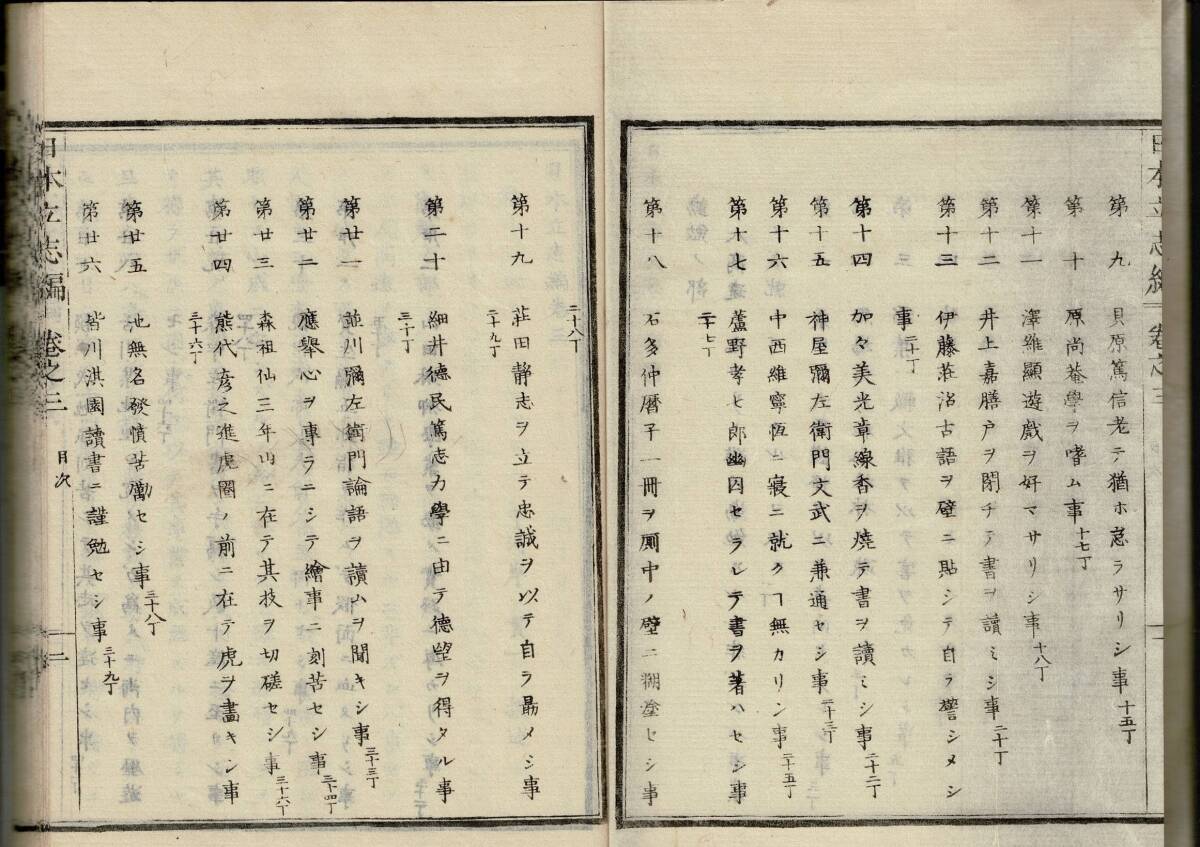 日本立志編 卷之三
第九 貝原篤信老テ猶ホ怠ラサリシ事 十五丁
第十 原尚菴學ヲ嗜ム事 十七丁
第十一 澤維顯遊戲ヲ好マサリシ事 十八丁
第十二 井上嘉膳戸ヲ閉チテ書ヲ讀ミシ事 二十丁
第十三 伊藤莊治古語ヲ壁ニ貼シテ自ラ警シメシ
事 二十丁
第十四 加々美光章線香ヲ燒テ書ヲ讀ミシ事 二十二丁
第十五 神屋彌左衛門文武ニ兼通セシ事 二十三丁
第十六 中西維寧恆ニ寢ニ就クヿ無カリシ事 二十五丁
第十七 蘆野孝七郎幽囚セラレテ書ヲ著ハセシ事
二十七丁
第十八 石多仲暦子一冊ヲ厠中ノ壁ニ糊塗セシ事
二十八丁
第十九 莊田静志ヲ立テ忠誠ヲ以テ自ラ勗メシ事
二十九丁
第二十 細井德民篤志力學ニ由テ德望ヲ得タル事
三十丁
第廿一 並川彌左衛門論語ヲ讀ムヲ聞キシ事 三十三丁
第廿二 應舉心ヲ專ラニシテ繪事ニ刻苦セシ事 三十四丁
第廿三 森祖仙三年山ニ在テ其技ヲ切磋セシ事 三十六丁
第廿四 熊代彦之進虎圈ノ前ニ在テ虎ヲ畫キシ事
三十六丁
第廿五 池無名發憤苦勵セシ事 三十八丁
第廿六 皆川淇園讀書ニ謹勉セシ事 三十九丁
日本立志編 卷之三 目次 二